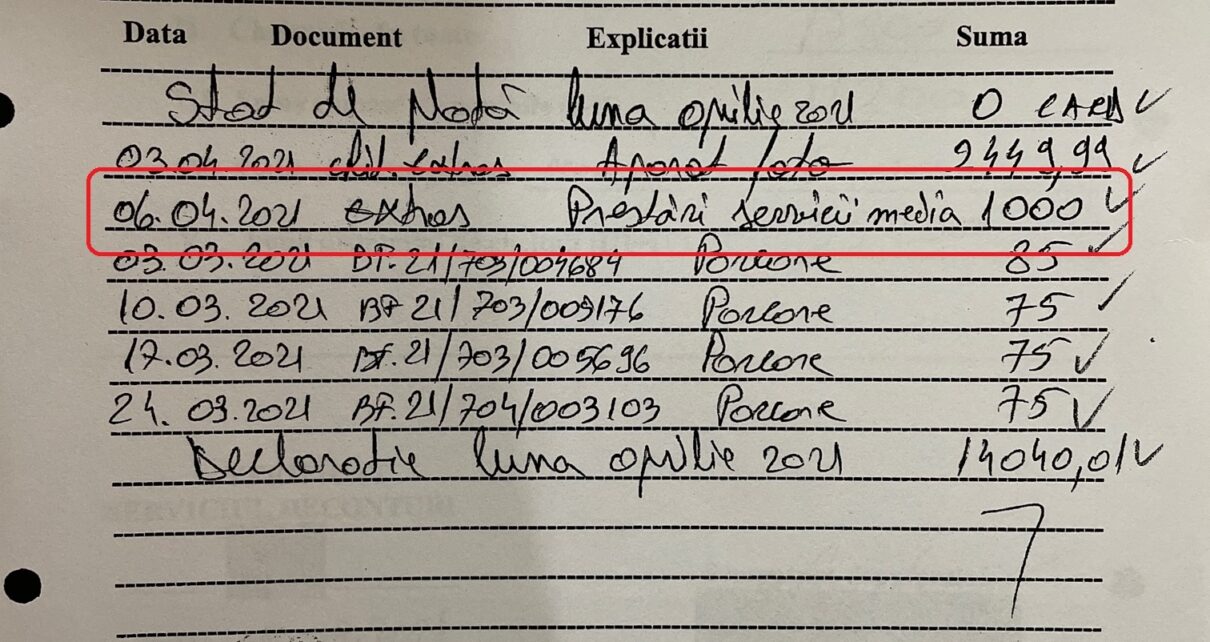 Data Document Explicatii Suma
Stat de plată luna aprilie 2021 0 CARD
03.04.2021 extras Aparat foto 2449,99
06.04.2021 extras Prestări servicii media 1000
03.03.2021 BF.21/703/004684 Parcare 85
10.03.2021 BF 21/703/009176 Parcare 75
17.03.2021 BF.21/703/005696 Parcare 75
24.03.2021 BF.21/704/003103 Parcare 75
Declaratie luna aprilie 2021 14040,01